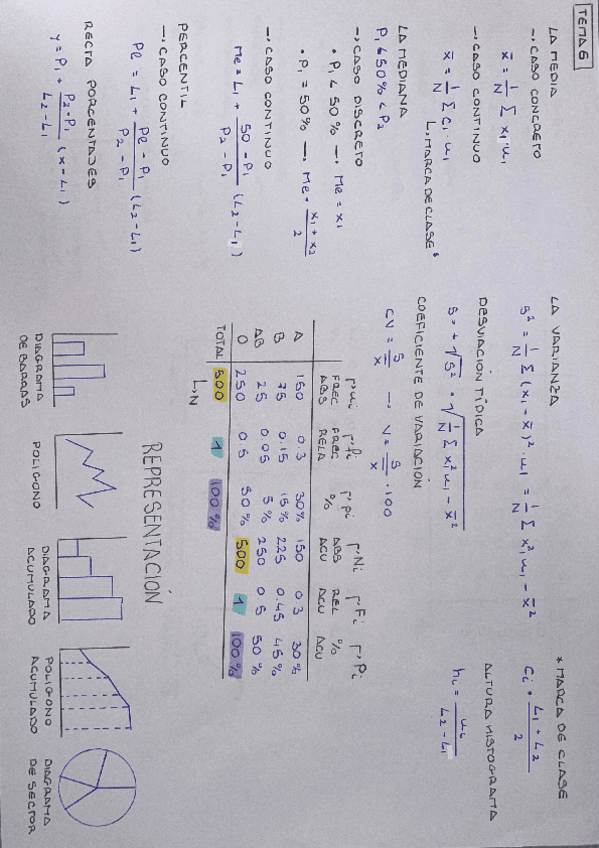 TEMA 6
LA MEDIA
→ CASO CONCRETO
x̄ = 1/N Σ xi · ui
→ CASO CONTINUO
x̄ = 1/N Σ ci · ui
↳ MARCA DE CLASE *
LA MEDIANA
P1 ≤ 50% < P2
→ CASO DISCRETO
• P1 < 50% → Me = x1
• P1 = 50% → Me = (x1 + x2)/2
→ CASO CONTINUO
Me = L1 + (50 - P1)/(P2 - P1) (L2 - L1)
PERCENTIL
→ CASO CONTINUO
Pl = L1 + (Pl - P1)/(P2 - P1) (L2 - L1)
RECTA PORCENTAJES
y = P1 + (P2 - P1)/(L2 - L1) (x - L1)
LA VARIANZA
s² = 1/N Σ (xi - x̄)² · ui = 1/N Σ x²i ui - x̄²
DESVIACIÓN TÍDICA
s = + √s² = √(1/N Σ xi² ui - x̄²)
COEFICIENTE DE VARIACIÓN
CV = s/x̄ → V = s/x̄ · 100
* MARCA DE CLASE
ci = (L1 + L2)/2
ALTURA HISTOGRAMA
hi = ui/(L2 - L1)
ui fi pi Ni Fi Pi
FREC ABS FREC RELA % ABS ACU REL ACU % ACU
A 150 0.3 30% 150 0.3 30%
B 75 0.15 15% 225 0.45 45%
AB 25 0.05 5% 250 0.5 50%
O 250 0.5 50% 500 1 100%
TOTAL 500 1 100%
↳ N
REPRESENTACIÓN
DIAGRAMA DE BARRAS
POLIGONO
DIAGRAMA ACUMULADO
POLIGONO ACUMULADO
DIAGRAMA DE SECTOR